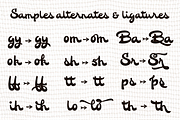 Samples alternates & ligatures
gy → gy om → om Ba → Ba
ok → ok sh → sh Sr → Sr
tt → tt tt → tt ps → ps
ih → th lo → lo th → th